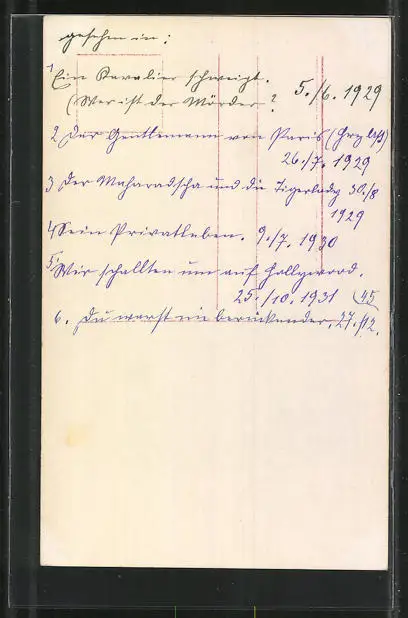 gesehen in:
1 Ein Kavalier schweigt.
(Wer ist der Mörder? 5./6. 1929
2 Der Gentlemann von Paris
26./7. 1929
3 Der Maharadscha und die Tigerlady 30./8
1929
4 Sein Privatleben. 9./7. 1930
5. Wir schallten um auf Hollywood.
25./10. 1931 (45
6. Du warst nie berückender. 27./12.